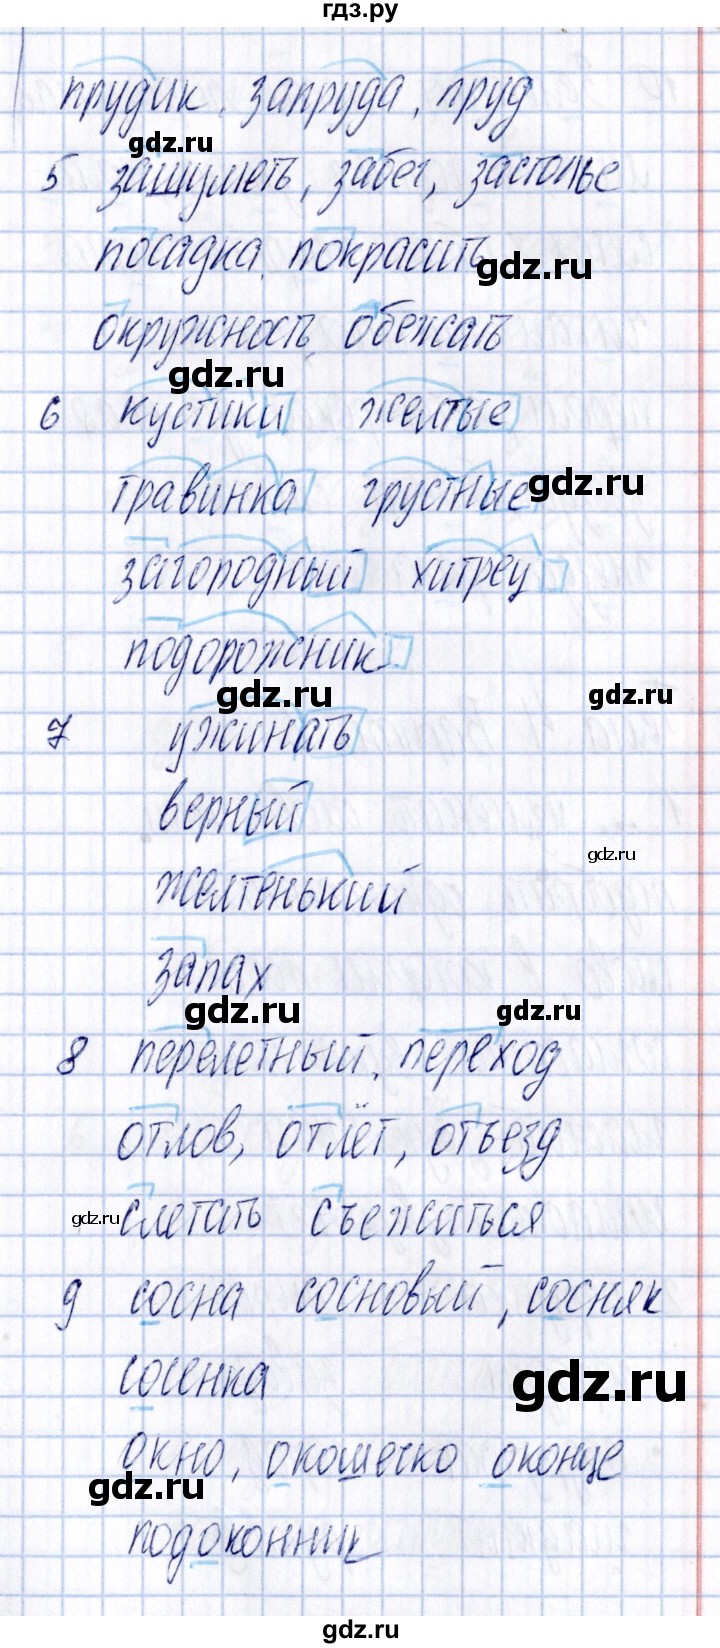 гдз.ру
прудик, запруда, пруд
gdz.ru
5 зашуметь, забег, застолье
посадка, покрасить
gdz.ru
окружность, обежать
gdz.ru
6 кустики желтые
травинка грустные
gdz.ru
загородный хитрец
подорожник
gdz.ru gdz.ru
7 ужинать
верный
gdz.ru
желтенький
запах
gdz.ru gdz.ru
8 перелетный, переход
отлов, отлёт, отъезд
gdz.ru слетать съежиться
9 сосна сосновый, сосняк
сосенка
gdz.ru
окно, окошечко оконце
gdz.ru
подоконник
gdz.ru